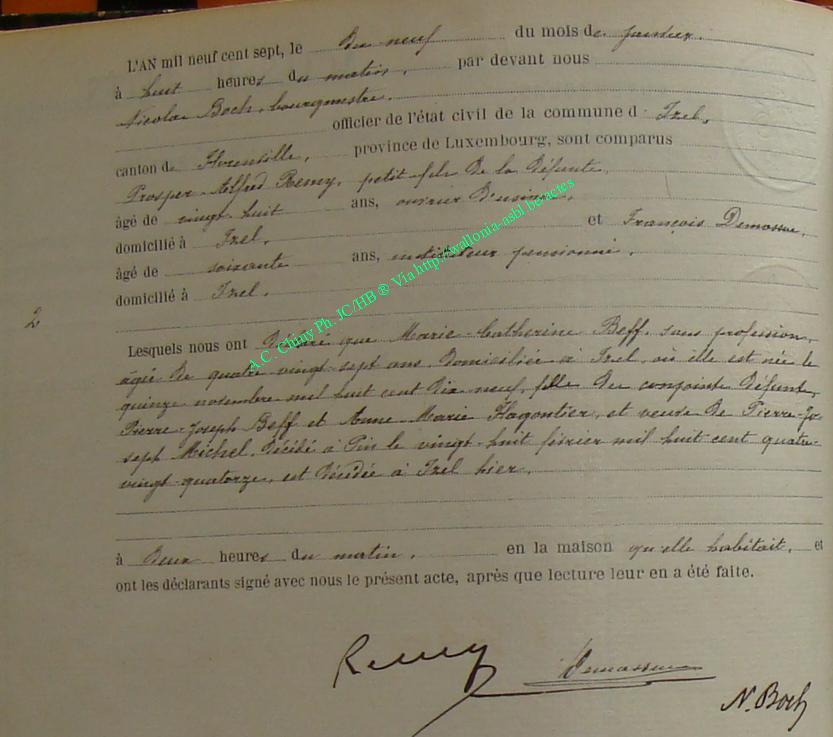 L'AN mil neuf cent sept, le dix neuf du mois de janvier.
à huit heures du matin, par devant nous
Nicolas Boch, bourgmestre,
officier de l'état civil de la commune d Izel,
canton de Florenville, province de Luxembourg, sont comparus
Prosper-Alfred Remy, petit-fils de la défunte,
âgé de vingt-huit ans, ouvrier d'usine,
domicilié à Izel, et François Demasse,
âgé de soixante ans, instituteur pensionné,
domicilié à Izel.
2
Lesquels nous ont déclaré que Marie-Catherine Beff, sans profession,
âgée de quatre vingt-sept ans, domiciliée à Izel, où elle est née le
quinze novembre mil huit cent dix neuf, fille des conjoints défunts,
Pierre-Joseph Beff et Anne-Marie Flagontier, et veuve de Pierre-Jo-
seph Michel, décédé à Pin le vingt-huit février mil huit cent quatre-
vingt-quatorze, est décédée à Izel hier,
à deux heures du matin, en la maison qu'elle habitait, et
ont les déclarants signé avec nous le présent acte, après que lecture leur en a été faite.
Remy Demasse
N. Boch
A.C. Chiny Ph. JC/HB ® Via http://wallonia-asbl.be/actes